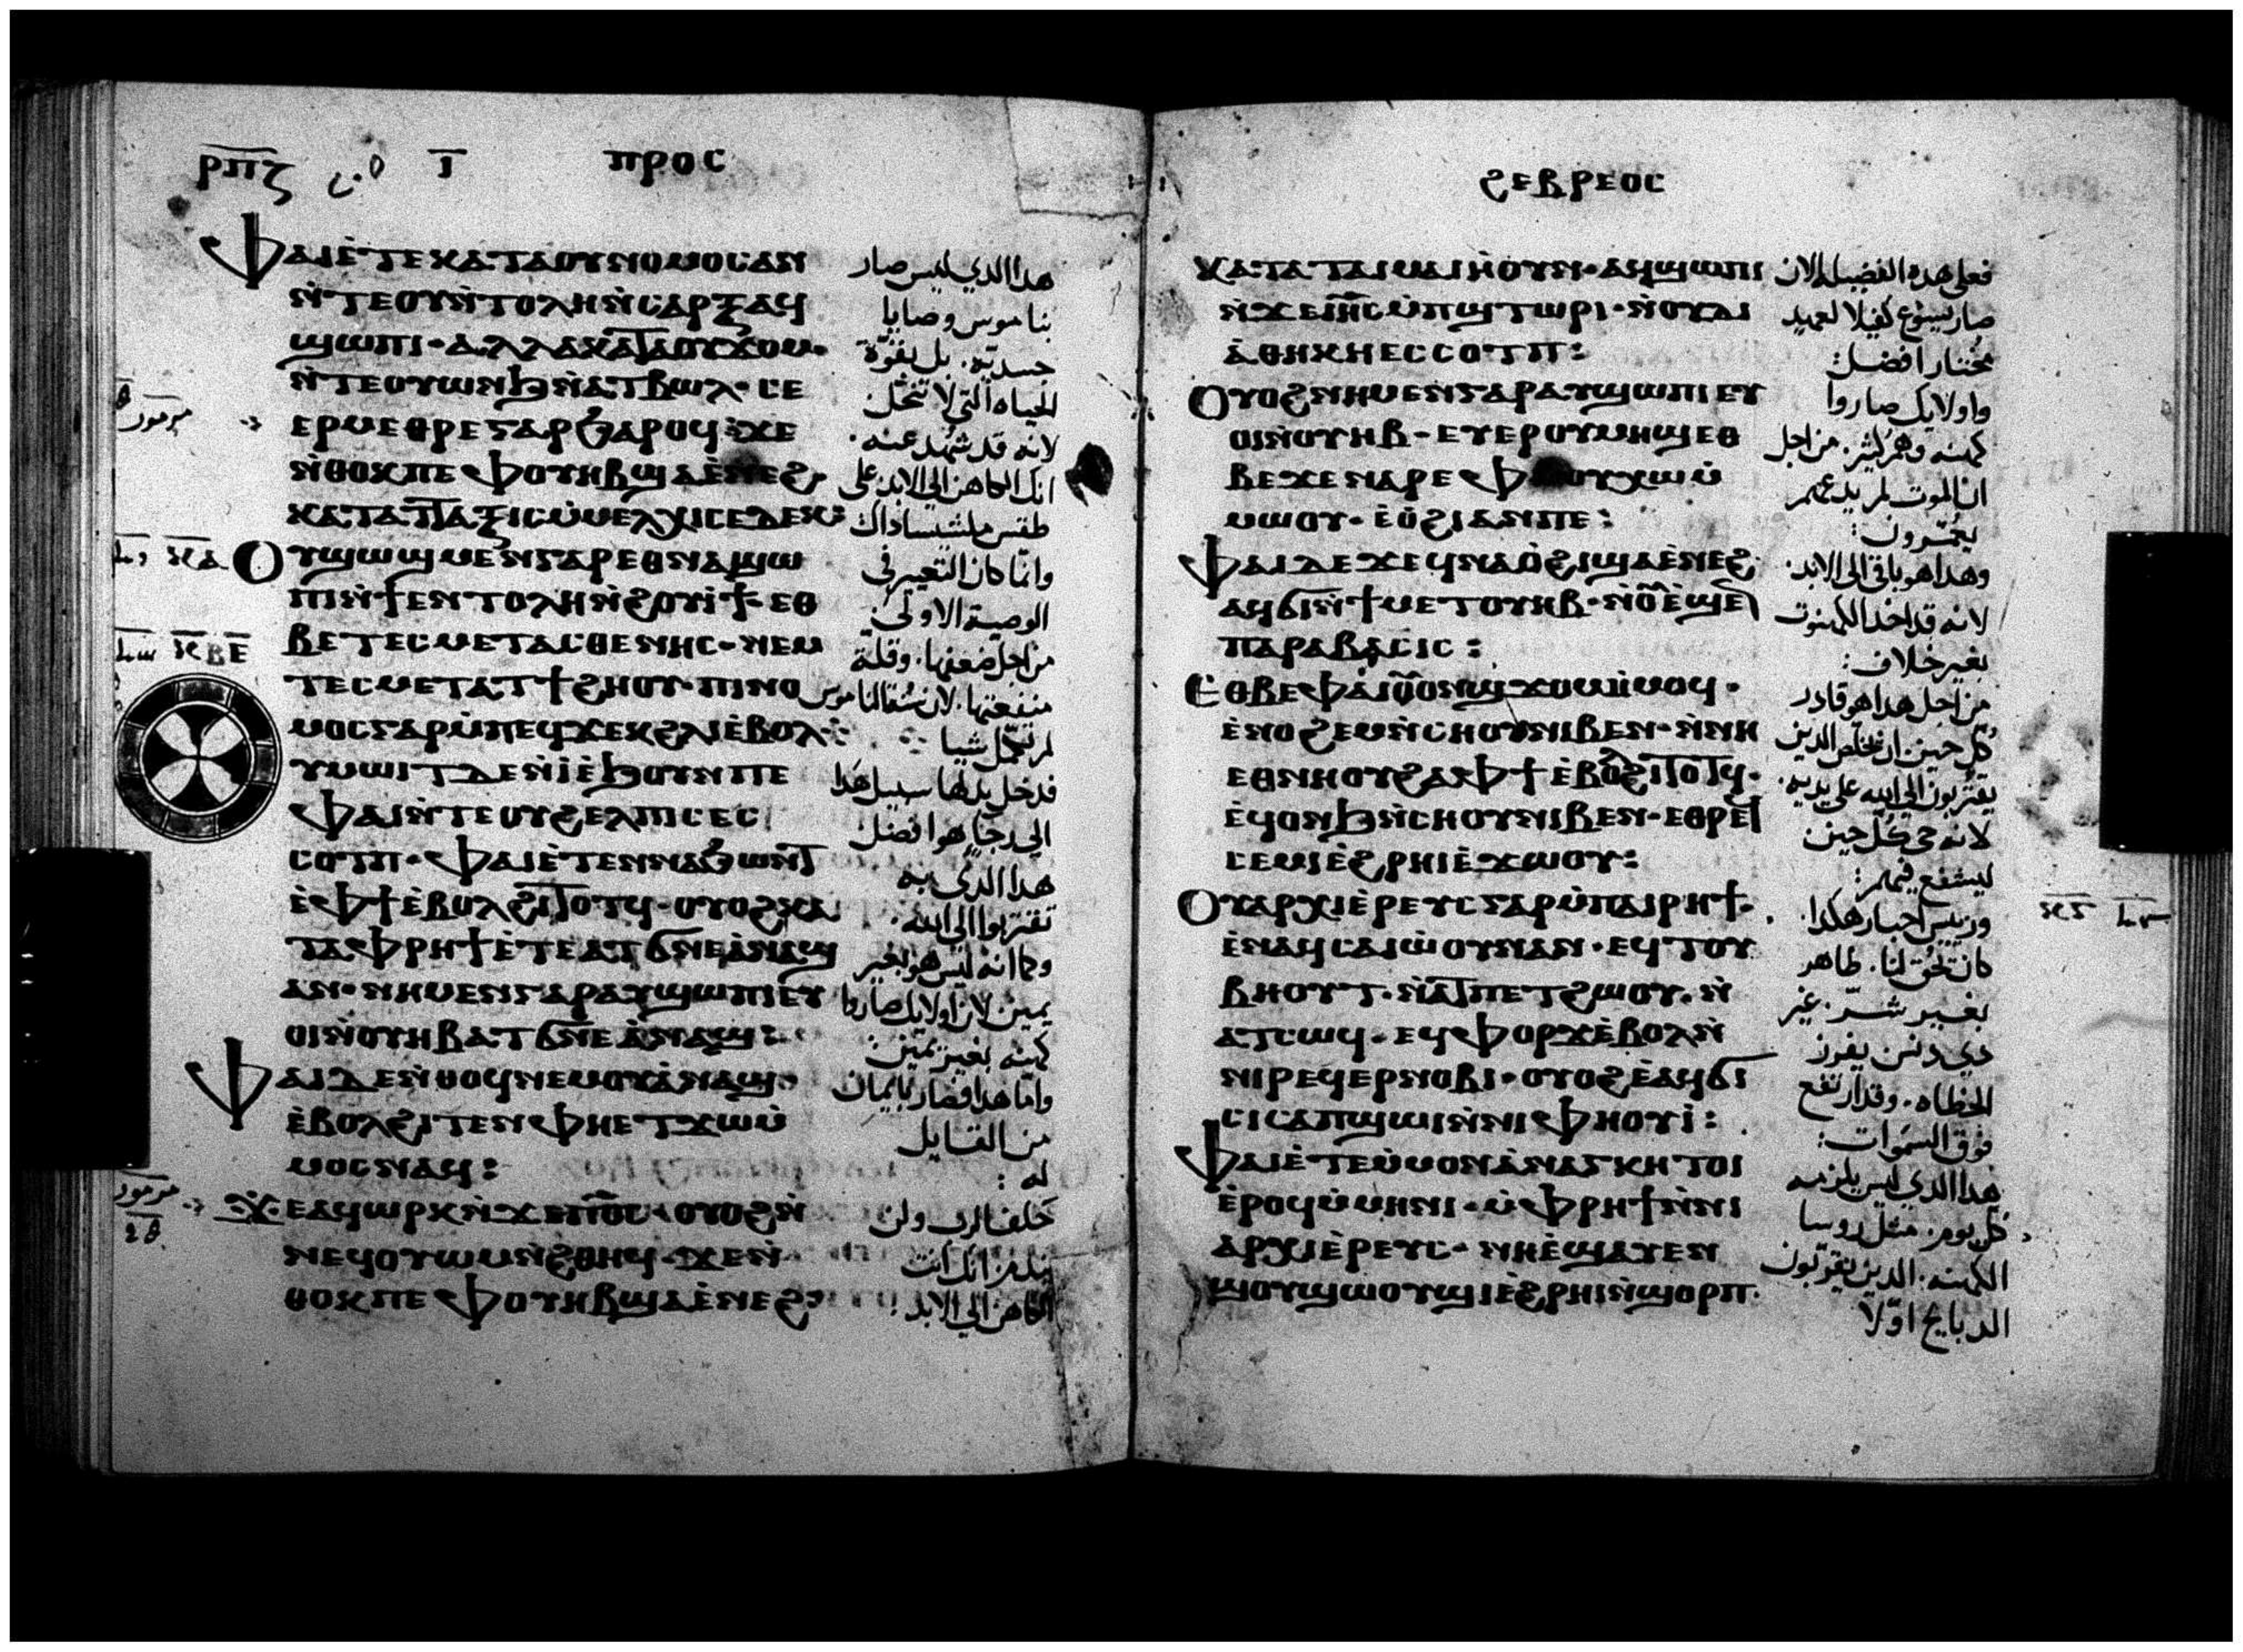 ⲣⲡⲍ ⲓ ⲡⲣⲟⲥ
ⲫⲁⲓ ⲉ̀ⲧⲉ ⲕⲁⲧⲁ ⲟⲩⲛⲟⲙⲟⲥ ⲁⲛ
ⲛ̀ⲧⲉ ⲟⲩⲛ̀ⲧⲟⲗⲏ ⲛ̀ⲥⲁⲣⲝ ⲁϥ
ϣⲱⲡⲓ· ⲁⲗⲗⲁ ⲕⲁⲧⲁ ⲟⲩϫⲟⲙ·
ⲛ̀ⲧⲉ ⲟⲩⲱⲛϧ ⲛ̀ⲁⲧⲃⲱⲗ· ⲥⲉ
ⲉⲣⲙⲉⲑⲣⲉ ⲅⲁⲣ ϧⲁⲣⲟϥ ϫⲉ
ⲛ̀ⲑⲟⲕ ⲡⲉ ⲫⲟⲩⲏⲃ ϣⲁ ⲉ̀ⲛⲉϩ
ⲕⲁⲧⲁ ⲧⲁⲝⲓⲥ ⲙ̀ⲙⲉⲗⲭⲓⲥⲉⲇⲉⲕ
ⲟⲩϣⲱϣ ⲙⲉⲛ ⲅⲁⲣ ⲉⲑⲛⲁϣⲱ
ⲡⲓ ⲛ̀ϯⲉⲛⲧⲟⲗⲏ ⲛ̀ϩⲟⲩⲓ̀ϯ· ⲉⲑ
ⲃⲉ ⲧⲉⲥⲙⲉⲧⲁⲥⲑⲉⲛⲏⲥ· ⲛⲉⲙ
ⲧⲉⲥⲙⲉⲧⲁⲧϯϩⲏⲟⲩ· ⲡⲓⲛⲟ
ⲙⲟⲥ ⲅⲁⲣ ⲙ̀ⲡⲉϥϫⲉⲕ ϩⲗⲓ ⲉ̀ⲃⲟⲗ
ⲩⲙⲱⲓⲧ ⲇⲉ ⲛ̀ⲓ̀ ⲉ̀ϧⲟⲩⲛ ⲡⲉ
ⲫⲁⲓ ⲛ̀ⲧⲉ ⲟⲩϩⲉⲗⲡⲓⲥ ⲉⲥ
ⲥⲟⲧⲡ· ⲫⲁⲓ ⲉ̀ⲧⲉⲛⲛⲁϧⲱⲛⲧ
ⲉ̀ⲫϯ ⲉ̀ⲃⲟⲗ ϩⲓⲧⲟⲧϥ· ⲟⲩⲟϩ ⲕⲁ
ⲧⲁ ⲫⲣⲏϯ ⲉ̀ⲧⲉ ⲁⲧϭⲛⲉ ⲁ̀ⲛⲁϣ
ⲁⲛ· ⲛⲏ ⲙⲉⲛ ⲅⲁⲣ ⲁⲩϣⲱⲡⲓ ⲉⲩ
ⲟⲓ ⲛ̀ⲟⲩⲏⲃ ⲁⲧϭⲛⲉ ⲁ̀ⲛⲁϣ:
ⲫⲁⲓ ⲇⲉ ⲛ̀ⲑⲟϥ ⲛⲉⲙ ⲟⲩⲁ̀ⲛⲁϣ
ⲉ̀ⲃⲟⲗ ϩⲓⲧⲉⲛ ⲫⲏ ⲉⲧϫⲱ ⲙ̀
ⲙⲟⲥ ⲛⲁϥ:
ϫⲉ ⲁϥⲱⲣⲕ ⲛ̀ϫⲉ ⲡⲟ̅ⲥ̅· ⲟⲩⲟϩ ⲛ̀
ⲛⲉϥⲟⲩⲱⲙ ⲛ̀ϩⲑⲏϥ· ϫⲉ ⲛ̀
ⲑⲟⲕ ⲡⲉ ⲫⲟⲩⲏⲃ ϣⲁ ⲉ̀ⲛⲉϩ
هذا الذي ليس صار
بناموس وصايا
جسديه. بل بقوّة
الحياه التي لا تنحلّ
لانه قد شهد عنه.
انك الكاهن الى الابد على
طقس ملشيساداك
وانما كان التغيير فى
الوصية الاولى
من اجل ضعفها. وقلة
منفعتها. لان الناموس
لم يكمّل شيا
فدخل بدلها سبيل هذا
الى رجاٍ هو افضل
هذا الذى به
نقترب الى الله.
وكما انه ليس هو بغير
يمين لان اولايك صاروا
كهنه بغير يمين:
واما هذا فصار بايمان
من القايل
له :
حلف الرب ولن
يندم انك انت
الكاهن الى الابد
ϩⲉⲃⲣⲉⲟⲥ
ⲕⲁⲧⲁ ⲧⲁⲓⲙⲁⲓⲏ ⲟⲩⲛ· ⲁϥϣⲱⲡⲓ
ⲛ̀ϫⲉ ⲓⲏ̅ⲥ̅ ⲙ̀ⲡϣⲧⲱⲣⲓ· ⲛ̀ⲟⲩⲇⲓ
ⲁ̀ⲑⲏⲕⲏ ⲉⲥⲥⲟⲧⲡ:
ⲟⲩⲟϩ ⲛⲏ ⲙⲉⲛ ⲅⲁⲣ ⲁⲩϣⲱⲡⲓ ⲉⲩ
ⲟⲓ ⲛ̀ⲟⲩⲏⲃ· ⲉⲩⲉⲣ ⲟⲩⲙⲏϣ ⲉⲑ
ⲃⲉ ϫⲉ ⲛⲁⲣⲉ ⲫⲙⲟⲩ ⲭⲱ ⲙ̀
ⲙⲱⲟⲩ· ⲉ̀ⲟ̀ϩⲓ ⲁⲛ ⲡⲉ:
ⲫⲁⲓ ⲇⲉ ϫⲉ ϥⲛⲁⲟ̀ϩⲓ ϣⲁ ⲉ̀ⲛⲉϩ
ⲁϥϭⲓ ⲛ̀ϯⲙⲉⲧⲟⲩⲏⲃ·
ⲡⲁⲣⲁⲃⲁⲥⲓⲥ:
ⲉⲑⲃⲉ ⲫⲁⲓ ⲟⲩⲟⲛ ϣϫⲟⲙ ⲙ̀ⲙⲟϥ·
ⲉ̀ⲛⲟϩⲉⲙ ⲛ̀ⲥⲏⲟⲩ ⲛⲓⲃⲉⲛ· ⲛ̀ⲛⲏ
ⲉⲑⲛⲏⲟⲩ ϩⲁ ⲫϯ ⲉ̀ⲃⲟⲗ ϩⲓⲧⲟⲧϥ·
ⲉ̀ϥⲟⲛϧ ⲛ̀ⲥⲏⲟⲩ ⲛⲓⲃⲉⲛ· ⲉⲑⲣⲉϥ
ⲥⲉⲙⲓ ⲉ̀ϩⲣⲏⲓ ⲉ̀ϫⲱⲟⲩ:
ⲟⲩⲁⲣⲭⲓⲉ̀ⲣⲉⲩⲥ ⲅⲁⲣ ⲙ̀ⲡⲁⲓⲣⲏϯ·
ⲉ̀ⲛⲁϥⲥⲁⲓⲱⲟⲩ ⲛⲁⲛ· ⲉϥⲧⲟⲩ
ⲃⲏⲟⲩⲧ· ⲛ̀ⲁⲧⲡⲉⲧϩⲱⲟⲩ· ⲛ̀
ⲁⲧⲥⲱϥ· ⲉϥⲫⲟⲣϫ ⲉ̀ⲃⲟⲗ ⲛ̀
ⲛⲓⲣⲉϥⲉⲣⲛⲟⲃⲓ· ⲟⲩⲟϩ ⲉ̀ⲁϥϭⲓ
ⲥⲓ ⲥⲁⲡϣⲱⲓ ⲛ̀ⲛⲓⲫⲏⲟⲩⲓ̀:
ⲫⲁⲓ ⲉ̀ⲧⲉ ⲙ̀ⲙⲟⲛ ⲁ̀ⲛⲁⲅⲕⲏ ⲧⲟⲓ
ⲉ̀ⲣⲟϥ ⲙ̀ⲙⲏⲛⲓ· ⲙ̀ⲫⲣⲏϯ ⲛ̀ⲛⲓ
ⲁⲣⲭⲓⲉ̀ⲣⲉⲩⲥ· ⲛⲏ ⲉ̀ϣⲁⲩⲉⲛ
ϣⲟⲩϣⲱⲟⲩϣⲓ ⲉ̀ϩⲣⲏⲓ ⲛ̀ϣⲟⲣⲡ·
فعلى هذه الفضيله الان
صار يسوع كفيلا لعهد
مختار افضل:
واولايك صاروا
كهنه وهم كثير. من اجل
ان الموت لم يدعهم
يعمّرون:
وهذا هو باقى الى الابد.
لانه قد اخذ الكهنوت
بغير خلاف:
من اجل هذا هو قادر
كل حين. ان يخلص الذين
يقتربون الى الله على يديه.
لانه حى كل حين
ليشفع فيهم:
ورييس احبار هكذا.
كان يحق لنا. طاهر
بغير شرّ. غير
ذي دنس يفرز
الخطاه. وقد ارتفع
فوق السموات:
هذا الذي ليس يلزمه
كل يوم. مثل روسا
الكهنه. الذين يقربون
الذبايح اوّلا